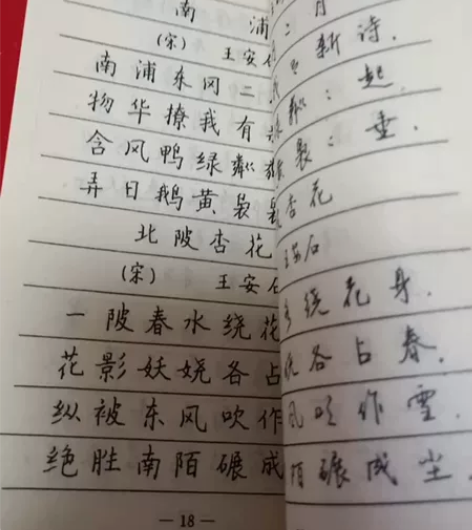 南浦
(宋) 王安
南浦东冈二
物华撩我有
含风鸭绿粼
弄日鹅黄袅
北陂杏花
(宋) 王安石
一陂春水绕花
花影妖娆各占
纵被东风吹作
绝胜南陌碾成
— 18 —
二月
新诗.
粼:起.
袅:垂.
杏花
王安石
绕花身.
各占春.
风吹作雪.
陌碾成尘.